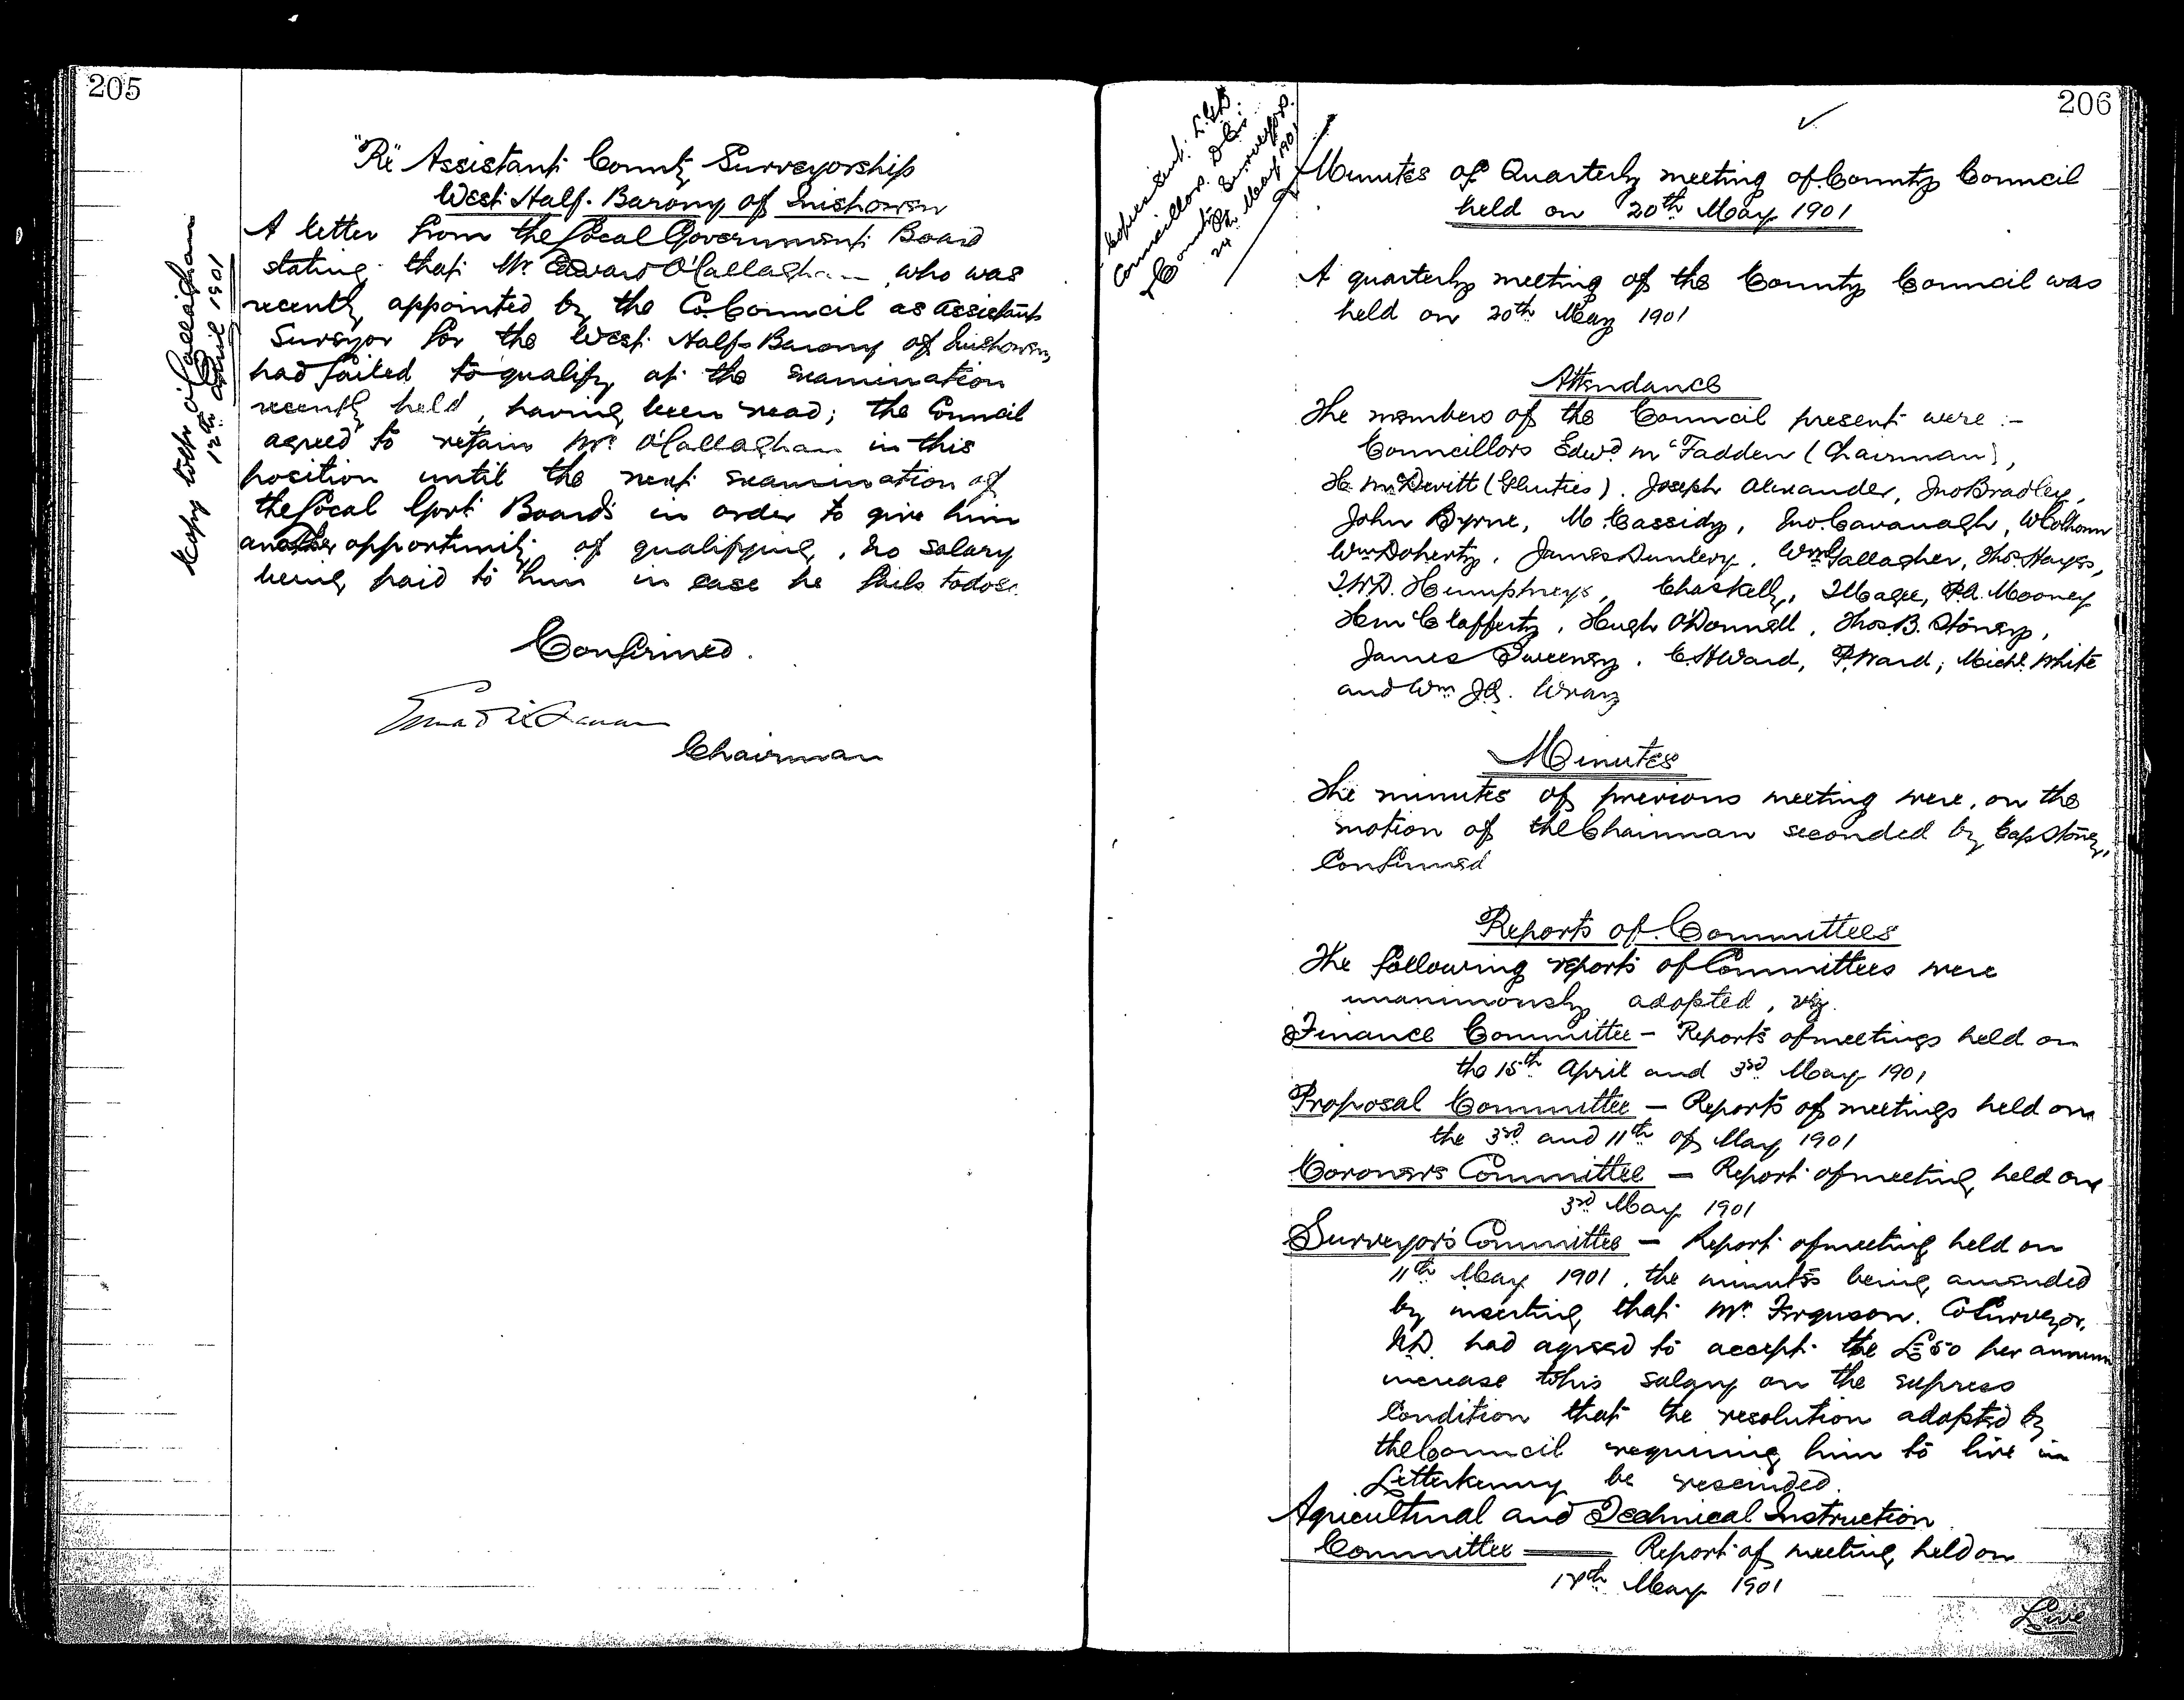 205
"Re Assistant County Surveyorship
West Half-Barony of Inishowen
A letter from the Local Government Board
stating that Mr Edward O'Callaghan, who was
recently appointed by the Co. Council as assistant
Surveyor for the West Half-Barony of Inishowen,
had failed to qualify at the examination
recently held, having been read; the Council
agreed to retain Mr O'Callaghan in this
position until the next examination of
the Local Govt Boards in order to give him
another opportunity of qualifying, no salary
being paid to him in case he fails to do so.
Confirmed.
Chairman
Copy to Mr O'Callaghan
12th April 1901
206
Copies sent: L.G.B.
Councillors. D Cs.
& County Surveyors.
24th May 1901
Minutes of Quarterly meeting of County Council
held on 20th May 1901
A quarterly meeting of the County Council was
held on 20th May 1901
Attendance
The members of the Council present were :-
Councillors Edwd McFadden (Chairman),
H. McDevitt (Glenties). Joseph Alexander, Jno Bradley,
John Byrne, M. Cassidy, Jno. Cavanagh, W Colhoun
Wm Doherty, James Dunlevy, Wm Gallagher, Thos. Hayes,
T.W.D. Humphreys, Chas Kelly, J Magee, P.A. Mooney
H McClafferty, Hugh O'Donnell, Thos. B. Stoney,
James Sweeney, C.H Ward, P. Ward, Michl. White
and Wm J.G. Wray
Minutes
The minutes of previous meeting were, on the
motion of the Chairman seconded by Cap Stoney,
Confirmed
Reports of Committees
The following reports of Committees were
unanimously adopted, viz.
Finance Committee - Reports of meetings held on
the 15th April and 3rd May 1901
Proposal Committee - Reports of meetings held on
the 3rd and 11th of May 1901
Coroners Committee - Report of meeting held on
3rd May 1901
Surveyor's Committee - Report of meeting held on
11th May 1901, the minutes being amended
by inserting that Mr Ferguson. Co Surveyor.
N.D. had agreed to accept the £50 per annum
increase to his salary on the express
condition that the resolution adopted by
the Council requiring him to live in
Letterkenny be rescinded.
Agricultural and Technical Instruction
Committee — Report of meeting held on
18th May 1901
Live